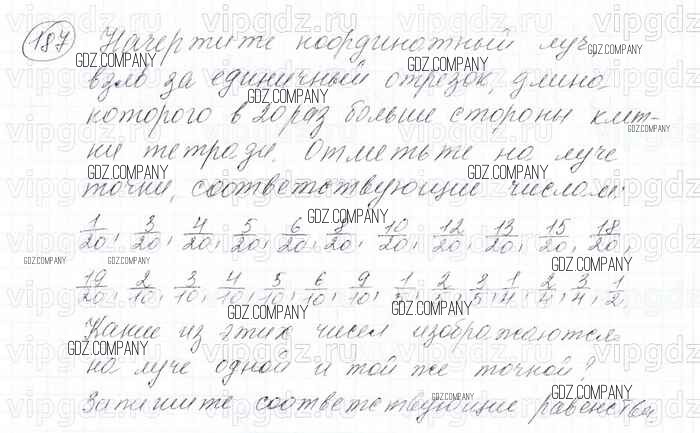 187 Начертите координатный луч,
взяв за единичный отрезок, длина
которого в 20 раз больше стороны клет-
ки тетради. Отметьте на луче
точки, соответствующие числам:
1/20, 3/20, 4/20, 5/20, 6/20, 8/20, 10/20, 12/20, 13/20, 15/20, 18/20,
19/20, 2/10, 3/10, 4/10, 5/10, 6/10, 9/10, 1/5, 2/5, 3/5, 1/4, 2/4, 3/4, 1/2.
Какие из этих чисел изображаются
на луче одной и той же точкой?
Запишите соответствующие равенства